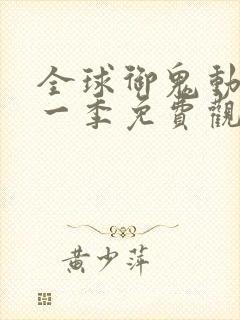 全球御鬼動
一季免費觀
黄少萍